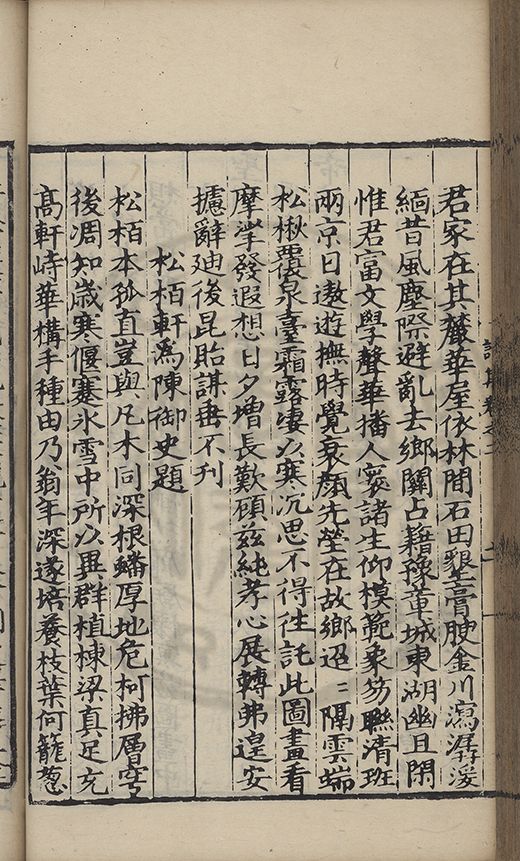 君家在其麓華屋依林閒石田墾膏腴金川瀉潺湲
緬昔風塵際避亂去鄉關占籍豫章城東湖幽且閑
惟君富文學聲華播人寰諸生仰模範象笏聯清班
兩京日遨遊撫時覺衰顏先塋在故鄉迢〻隔雲端
松楸覆泉臺霜露凄以寒沉思不得徃託此圖畫看
摩挲發遐想日夕增長歎碩茲純孝心展轉弗遑安
攄辭廸後昆貽謀垂不刋
松栢軒爲陳御史題
松栢本孤直豈與凡木同深根蟠厚地危柯拂層穹
後凋知歲寒偃蹇氷雪中所以異群植棟梁真足充
髙軒峙華構手種由乃翁年深遂培養枝葉何籠葱